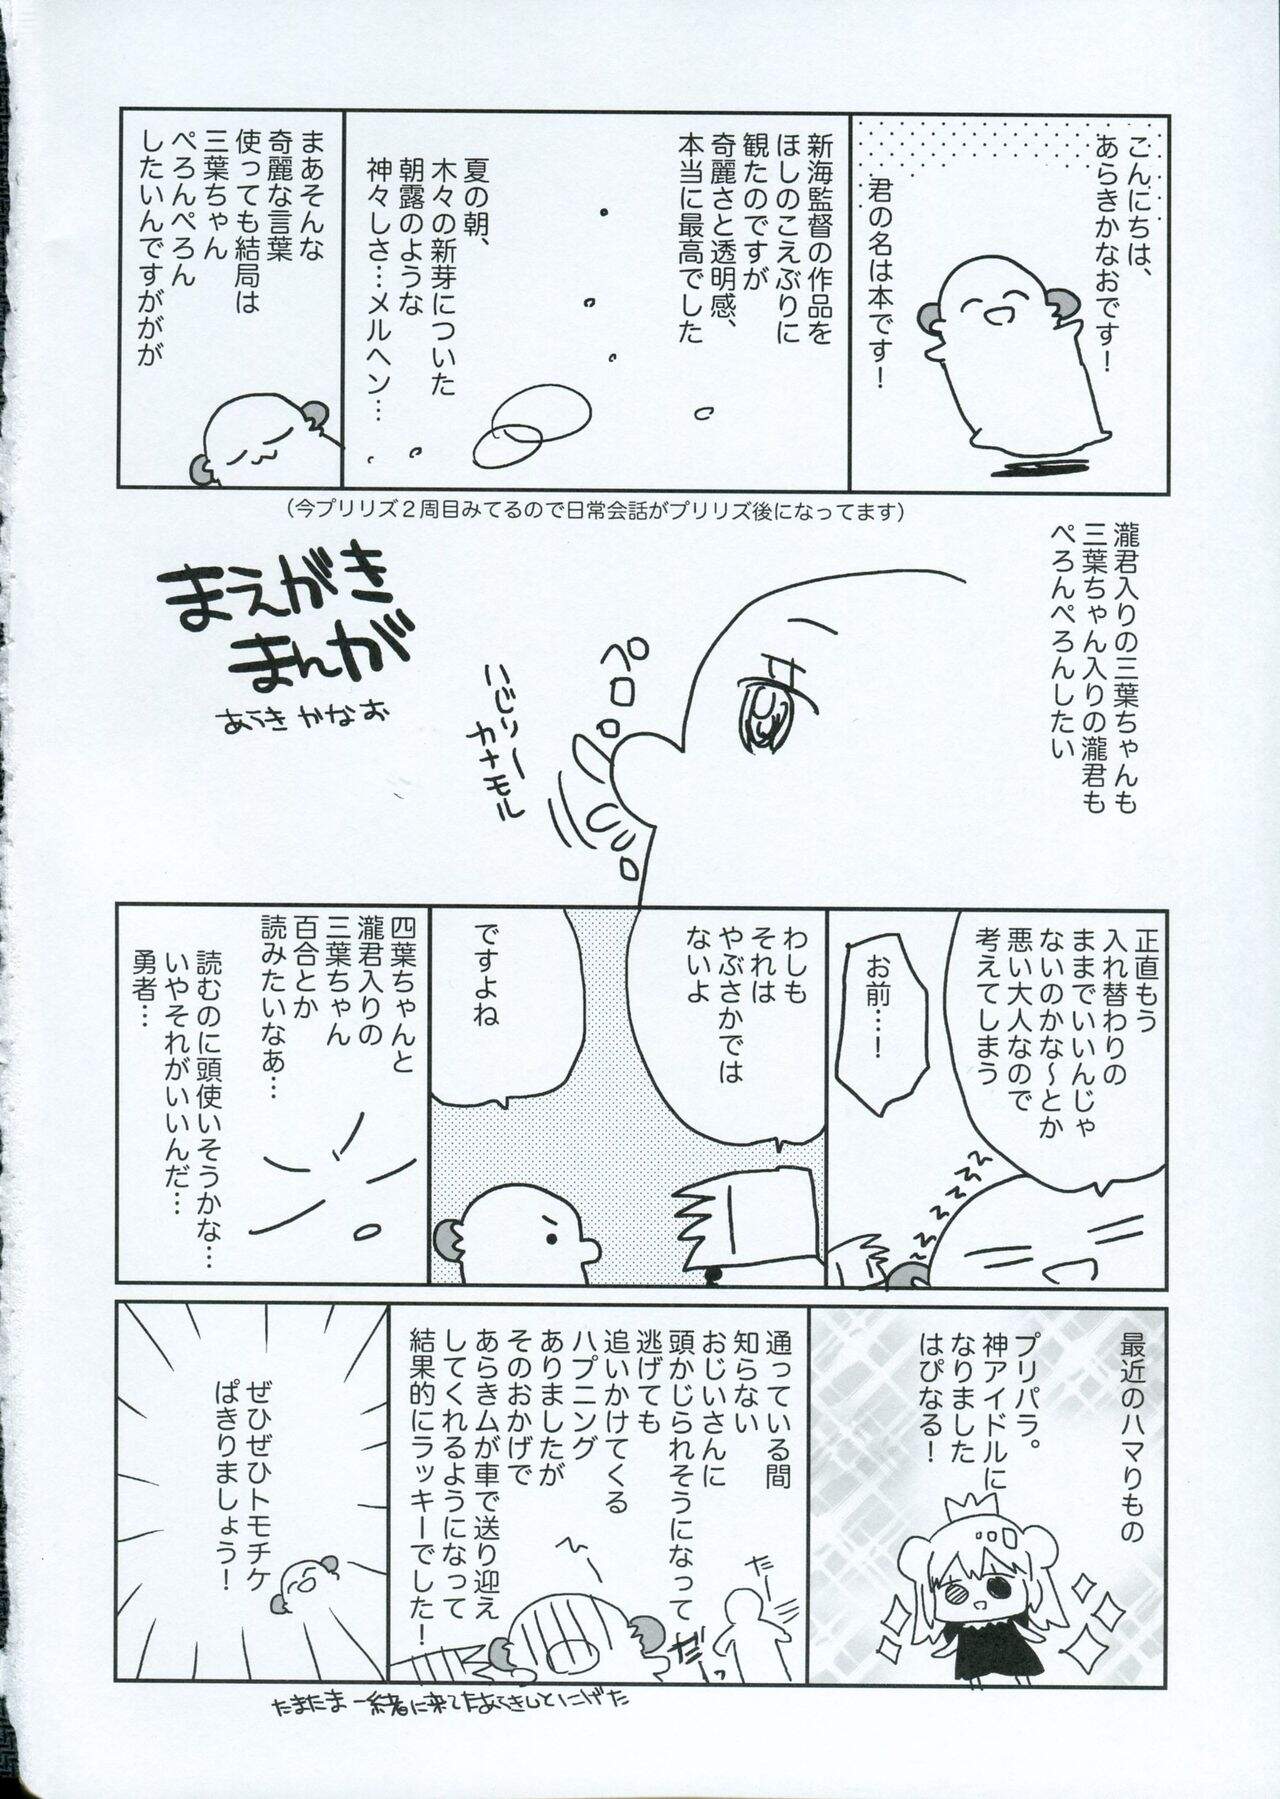 こんにちは、
あらきかなおです！
君の名は本です！
新海監督の作品を
ほしのこえぶりに
観たのですが
奇麗さと透明感、
本当に最高でした
夏の朝、
木々の新芽についた
朝露のような
神々しさ…メルヘン…
まあそんな
奇麗な言葉
使っても結局は
三葉ちゃん
ぺろんぺろん
したいんですががが
（今プリリズ２周目みてるので日常会話がプリリズ後になってます）
瀧君入りの三葉ちゃんも
三葉ちゃん入りの瀧君も
ぺろんぺろんしたい
ペロペロ
ハジリー
カナモル
まえがき
まんが
あらきかなお
正直もう
入れ替わりの
ままでいいんじゃ
ないのかな～とか
悪い大人なので
考えてしまう
お前…！
わしも
それは
やぶさかでは
ないよ
ですよね
四葉ちゃんと
瀧君入りの
三葉ちゃん
百合とか
読みたいなあ…
読むのに頭使いそうかな…
いやそれがいいんだ…
勇者…
最近のハマりもの
プリパラ。
神アイドルに
なりました
はぴなる！
通っている間
知らない
おじいさんに
頭かじられそうになって
逃げても
追いかけてくる
ハプニング
ありましたが
そのおかげで
あらきムが車で送り迎え
してくれるようになって
結果的にラッキーでした！
だー
だっ
たまたま一緒に来てたあらきしとにげた
ぜひぜひトモチケ
ぱきりましょう！